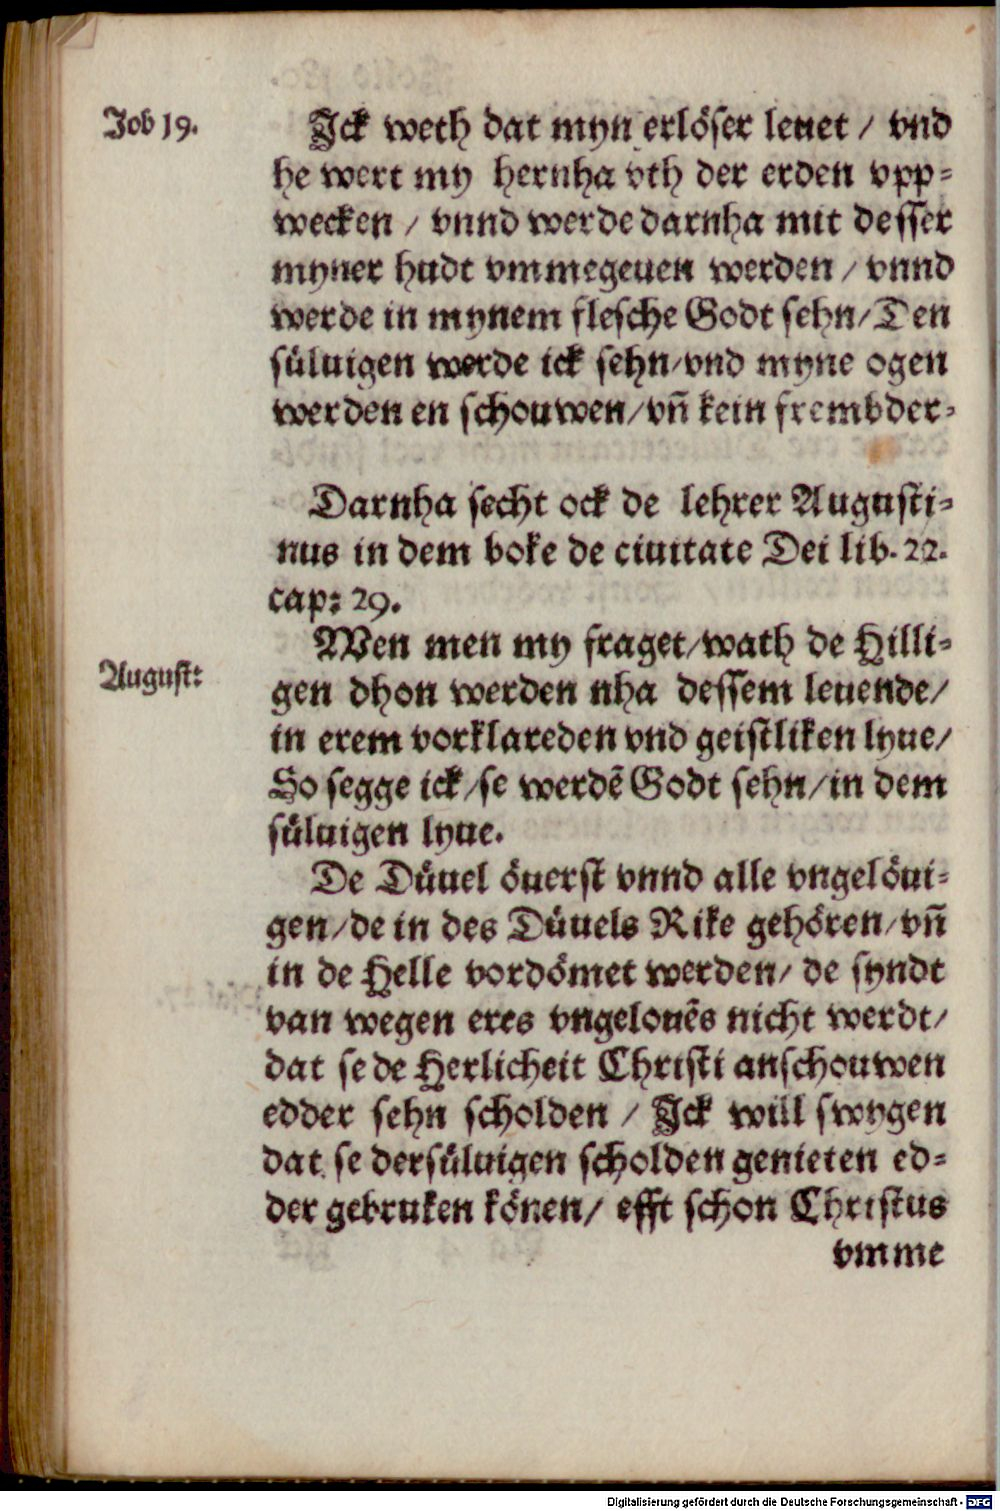 Job 19.
Jck weth dat myn erlöser leuet / vnd
he wert my hernha vth der erden vpp⸗
wecken / vnnd werde darnha mit desser
myner hudt vmmegeuen werden / vnnd
werde in mynem flesche Godt sehn/ Den
süluigen werde ick sehn/vnd myne ogen
werden en schouwen/vñ kein frembder⸗
Darnha secht ock de lehrer Augusti⸗
nus in dem boke de ciuitate Dei lib. 22.
cap: 29.
August:
Wen men my fraget/wath de Hilli⸗
gen dhon werden nha dessem leuende/
in erem vorklareden vnd geistliken lyue/
So segge ick/se werdẽ Godt sehn/in dem
süluigen lyue.
De Düuel öuerst vnnd alle vngelöui⸗
gen/de in des Düuels Rike gehören/vñ
in de Helle vordömet werden/ de syndt
van wegen eres vngelouẽs nicht werdt/
dat se de Herlicheit Christi anschouwen
edder sehn scholden / Jck will swygen
dat se dersüluigen scholden genieten ed⸗
der gebruken könen/ efft schon Christus
vmme
Digitalisierung gefördert durch die Deutsche Forschungsgemeinschaft - DFG